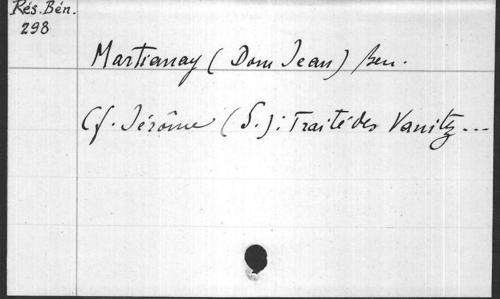 Rés. Bén.
298
Martianay (Dom Jean) Ben.
Cf. Jérôme (S.): Traité des Vanitz...